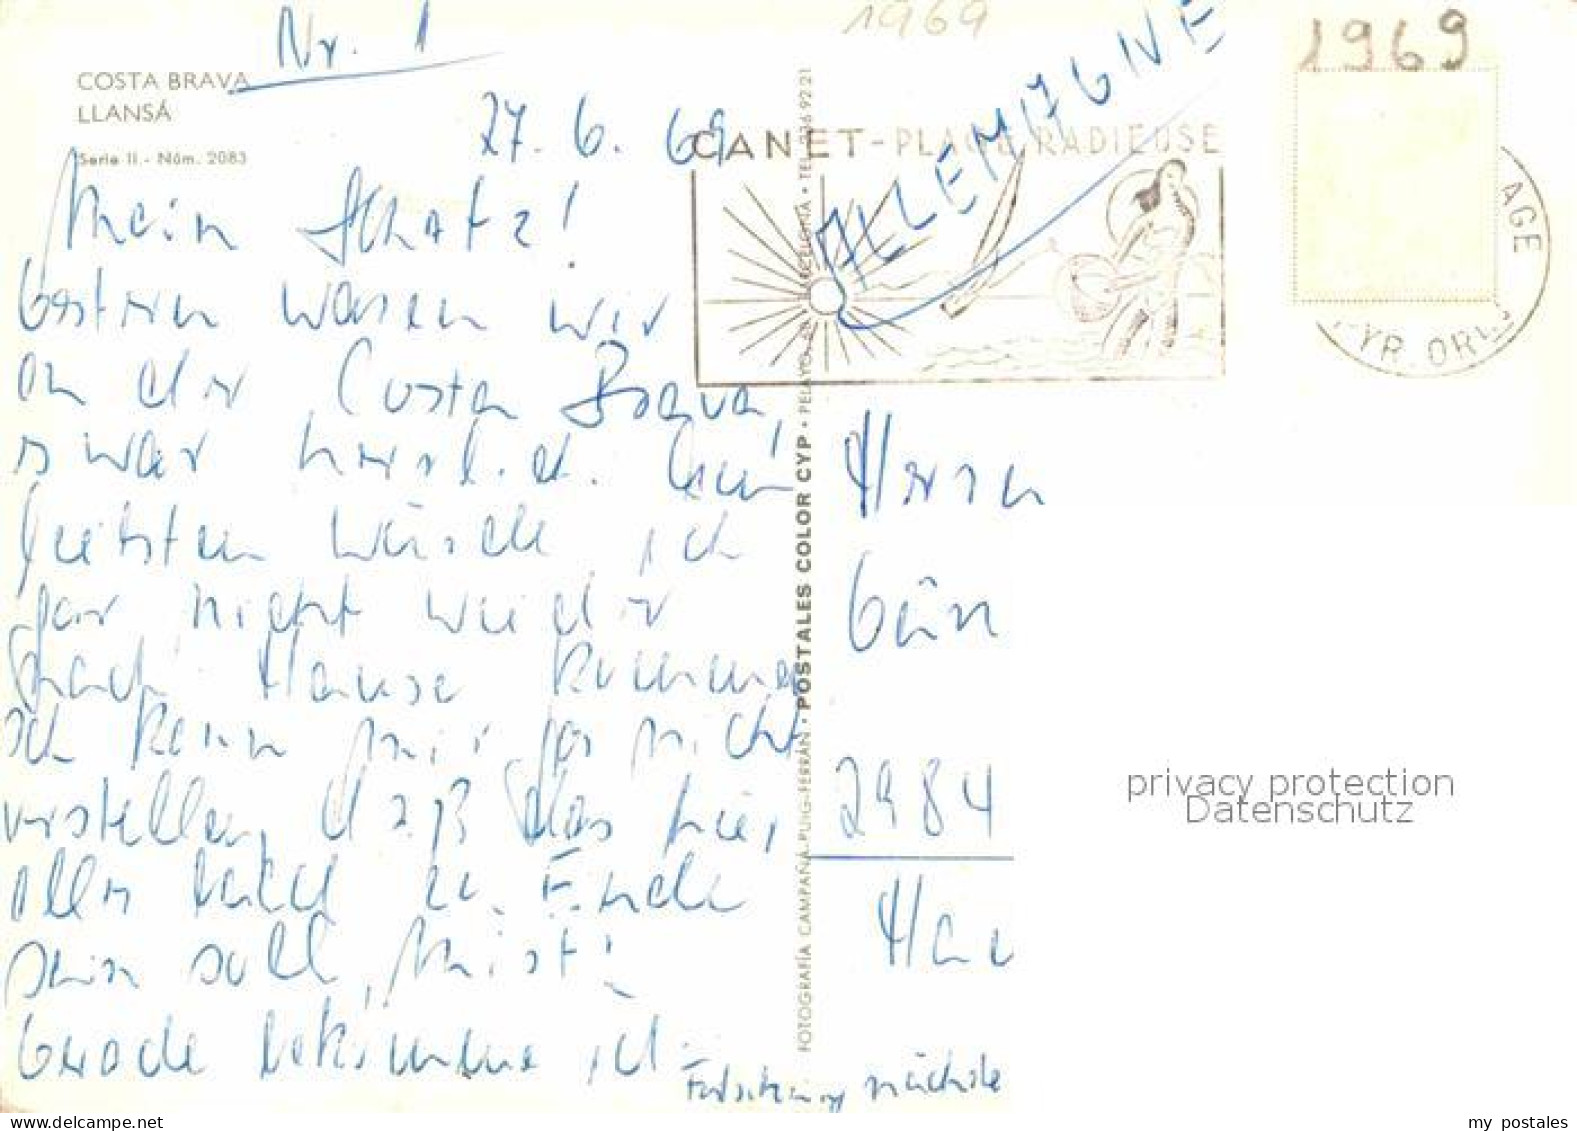 Nr. 1
1969
1969
COSTA BRAVA
LLANSÁ
Serie II.- Núm. 2083
27. 6. 69
CANET-PLAGE RADIEUSE
ALLEMAGNE
AGE
PYR. OR
Mein Schatz!
Gestern waren wir
an der Costa Brava,
s war herrlich. Am
liebsten würde ich
gar nicht wieder
nach Hause kommen
ich kann mir gar nicht
vorstellen, daß das hier
alles bald zu Ende
sein soll, Mist!
Gerade bekomme ich
Fortsetzung nächste
Herrn
Gün
2984
Ha
FOTOGRAFÍA CAMPAÑÁ-PUIG-FERRÁN · POSTALES COLOR CYP · PELAYO, BARCELONA · TEL. 226 92 21
privacy protection
Datenschutz
my postales